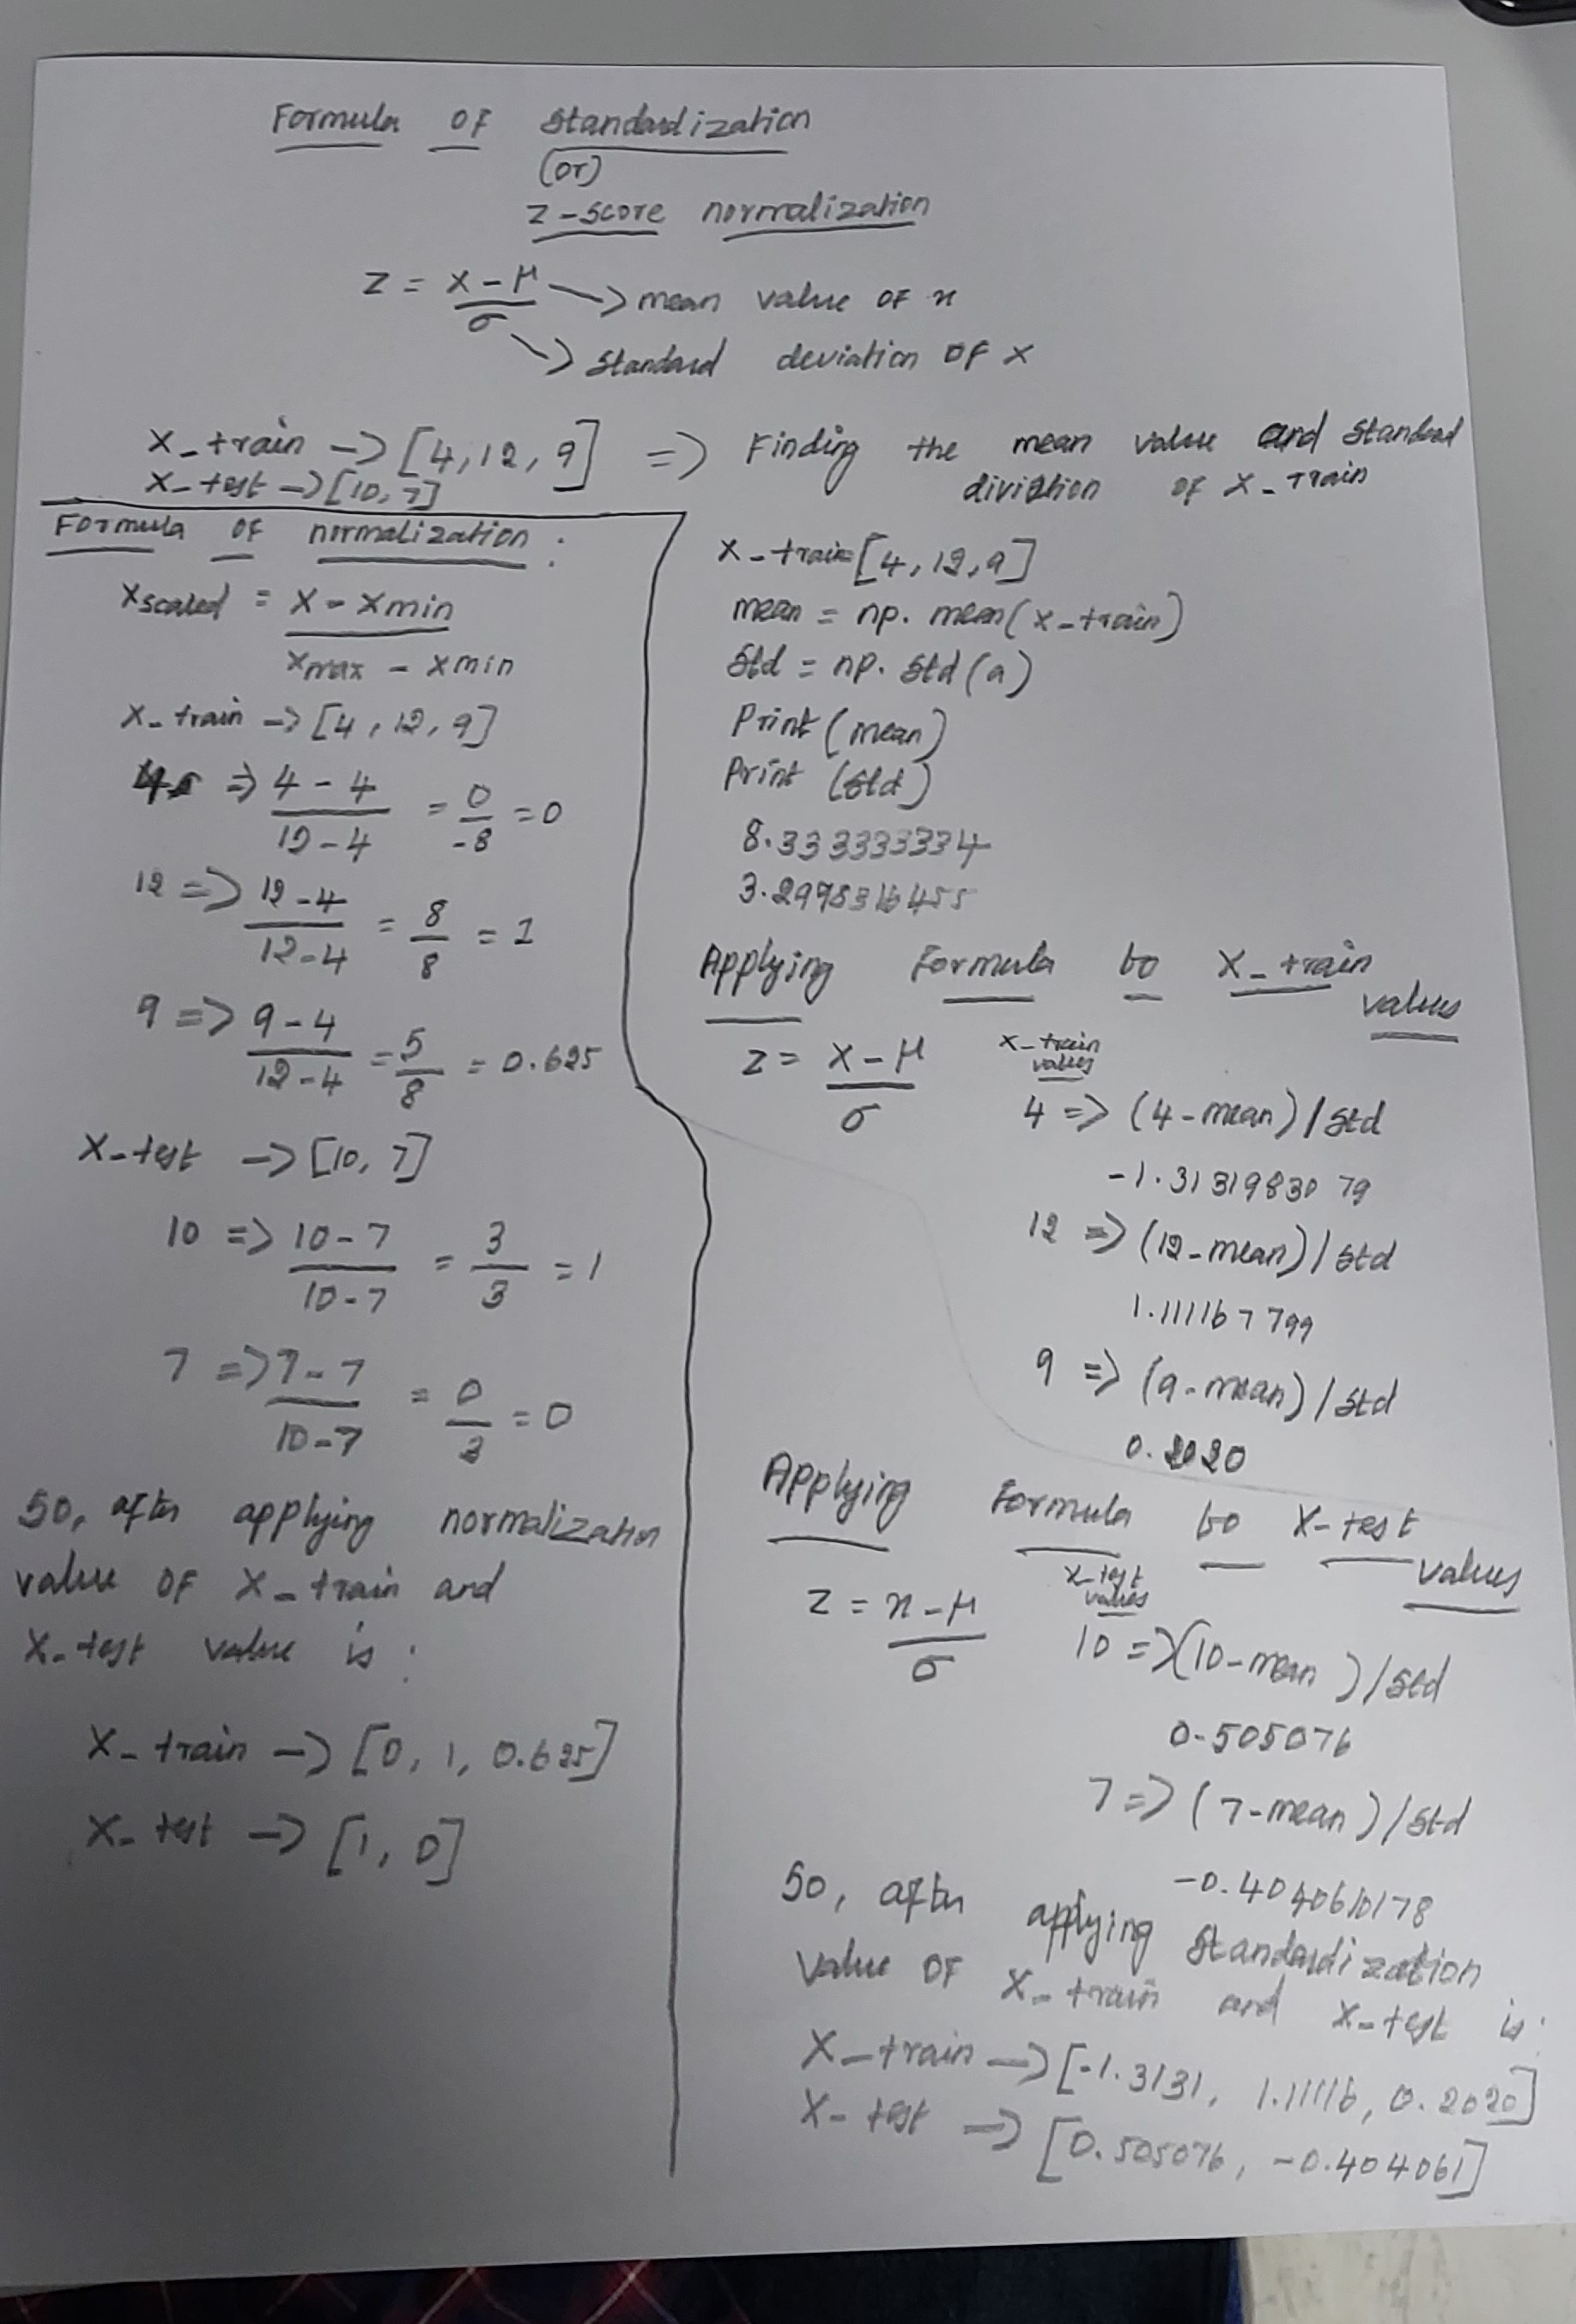 Formula OF Standardization
(or)
Z-score normalization
Z = X - μ -> mean value OF x
σ -> Standard deviation OF X
X_train -> [4, 12, 9] => Finding the mean value and standard
X_test -> [10, 7] divistion OF X_Train
Formula OF normalization :
Xscaled = X - Xmin
Xmax - Xmin
X_train -> [4, 12, 9]
4 => 4 - 4 = 0 = 0
12 - 4 -8
12 => 12 - 4 = 8 = 1
12 - 4 8
9 => 9 - 4 = 5 = 0.625
12 - 4 8
X_test -> [10, 7]
10 => 10 - 7 = 3 = 1
10 - 7 3
7 => 7 - 7 = 0 = 0
10 - 7 3
So, after applying normalization
value OF X_train and
X_test value is :
X_train -> [0, 1, 0.625]
X_test -> [1, 0]
X_train=[4, 12, 9]
mean = np. mean(X_train)
Std = np. Std (a)
Print (mean)
Print (Std)
8.333333334
3.2998316455
Applying Formula to X_train
values
Z = X - μ
σ
X_train
values
4 => (4 - mean) / Std
-1.3131983079
12 => (12 - mean) / Std
1.111167799
9 => (9 - mean) / Std
0.2020
Applying Formula to X-test
values
Z = x - μ
σ
X_test
values
10 => (10 - mean) / Std
0.505076
7 => (7 - mean) / Std
-0.4040610178
So, after applying Standardization
Value OF X_train and X_test is:
X_train -> [-1.3131, 1.11116, 0.2020]
X_test -> [0.505076, -0.404061]